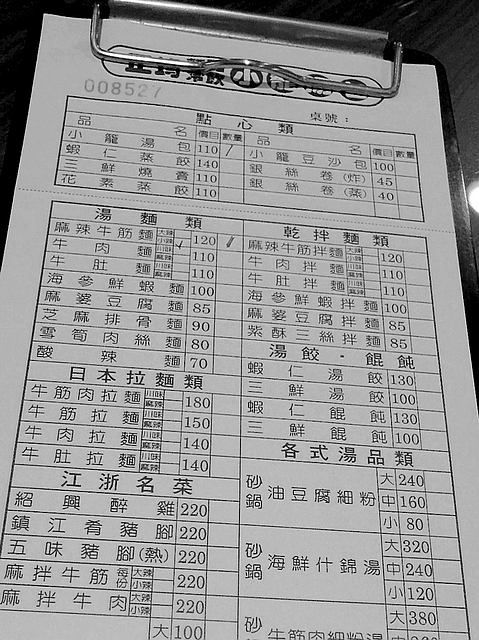 008527
桌號：
點心類
品名 價目 數量 品名 價目 數量
小籠湯包 110 小籠豆沙包 100
蝦仁蒸餃 140 銀絲卷(炸) 45
三鮮燒賣 110 銀絲卷(蒸) 40
花素蒸餃 110
湯麵類
麻辣牛筋麵 大辣 小辣 120
牛肉麵 川味 麻辣 110
牛肚麵 川味 麻辣 110
海參鮮蝦麵 100
麻婆豆腐麵 85
芝麻排骨麵 90
雪筍肉絲麵 80
酸辣麵 70
日本拉麵類
牛筋肉拉麵 川味 麻辣 180
牛筋拉麵 川味 麻辣 150
牛肉拉麵 川味 麻辣 140
牛肚拉麵 川味 麻辣 140
江浙名菜
紹興醉雞 220
鎮江肴豬腳 220
五味豬腳(熱) 220
麻拌牛筋 每份 大辣 小辣 220
麻拌牛肉 大辣 小辣 220
大 100
乾拌麵類
麻辣牛筋拌麵 大辣 小辣 120
牛肉拌麵 川味 麻辣 110
牛肚拌麵 川味 麻辣 110
海參鮮蝦拌麵 100
麻婆豆腐拌麵 85
紫酥三絲拌麵 85
湯餃·餛飩
蝦仁湯餃 130
三鮮湯餃 100
蝦仁餛飩 130
三鮮餛飩 100
各式湯品類
砂鍋 油豆腐細粉 大 240
中 160
小 80
砂鍋 海鮮什錦湯 大 320
中 240
小 120
砂 牛筋肉細粉湯 大 380